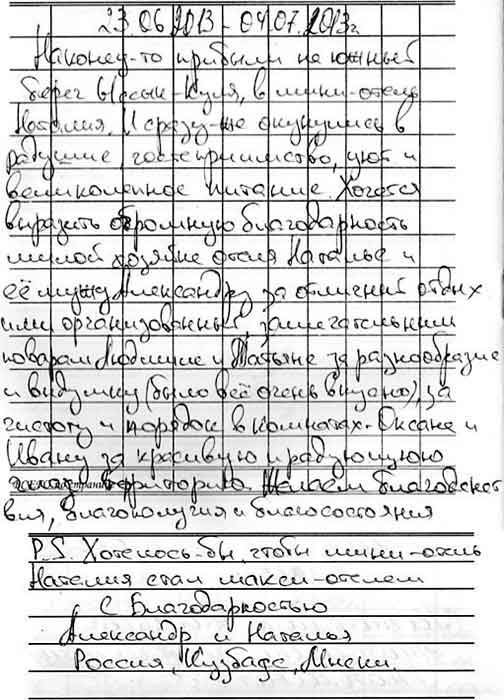 23.06.2013 - 04.07.2013г.
Наконец-то прибыли на южный
берег Иссык-Куля, в мини-отель
Наталия. И сразу-же окунулись в
радушие, гостеприимство, уют и
великолепное питание. Хочется
выразить огромную благодарность
милой хозяйке отеля Наталье и
её мужу Александру за отличный отдых
ими организованный, замечательным
поварам Людмиле и Татьяне за разнообразие
и выдумку (было всё очень вкусно), за
чистоту и порядок в комнатах - Оксане и
Ивану за красивую и радующую
территорию. Желаем благоденст
вия, благополучия и благосостояния
P.S. Хотелось-бы, чтобы мини-отель
Наталия стал макси-отелем
С Благодарностью
Александр и Наталья
Россия, Кузбасс, Мыски.